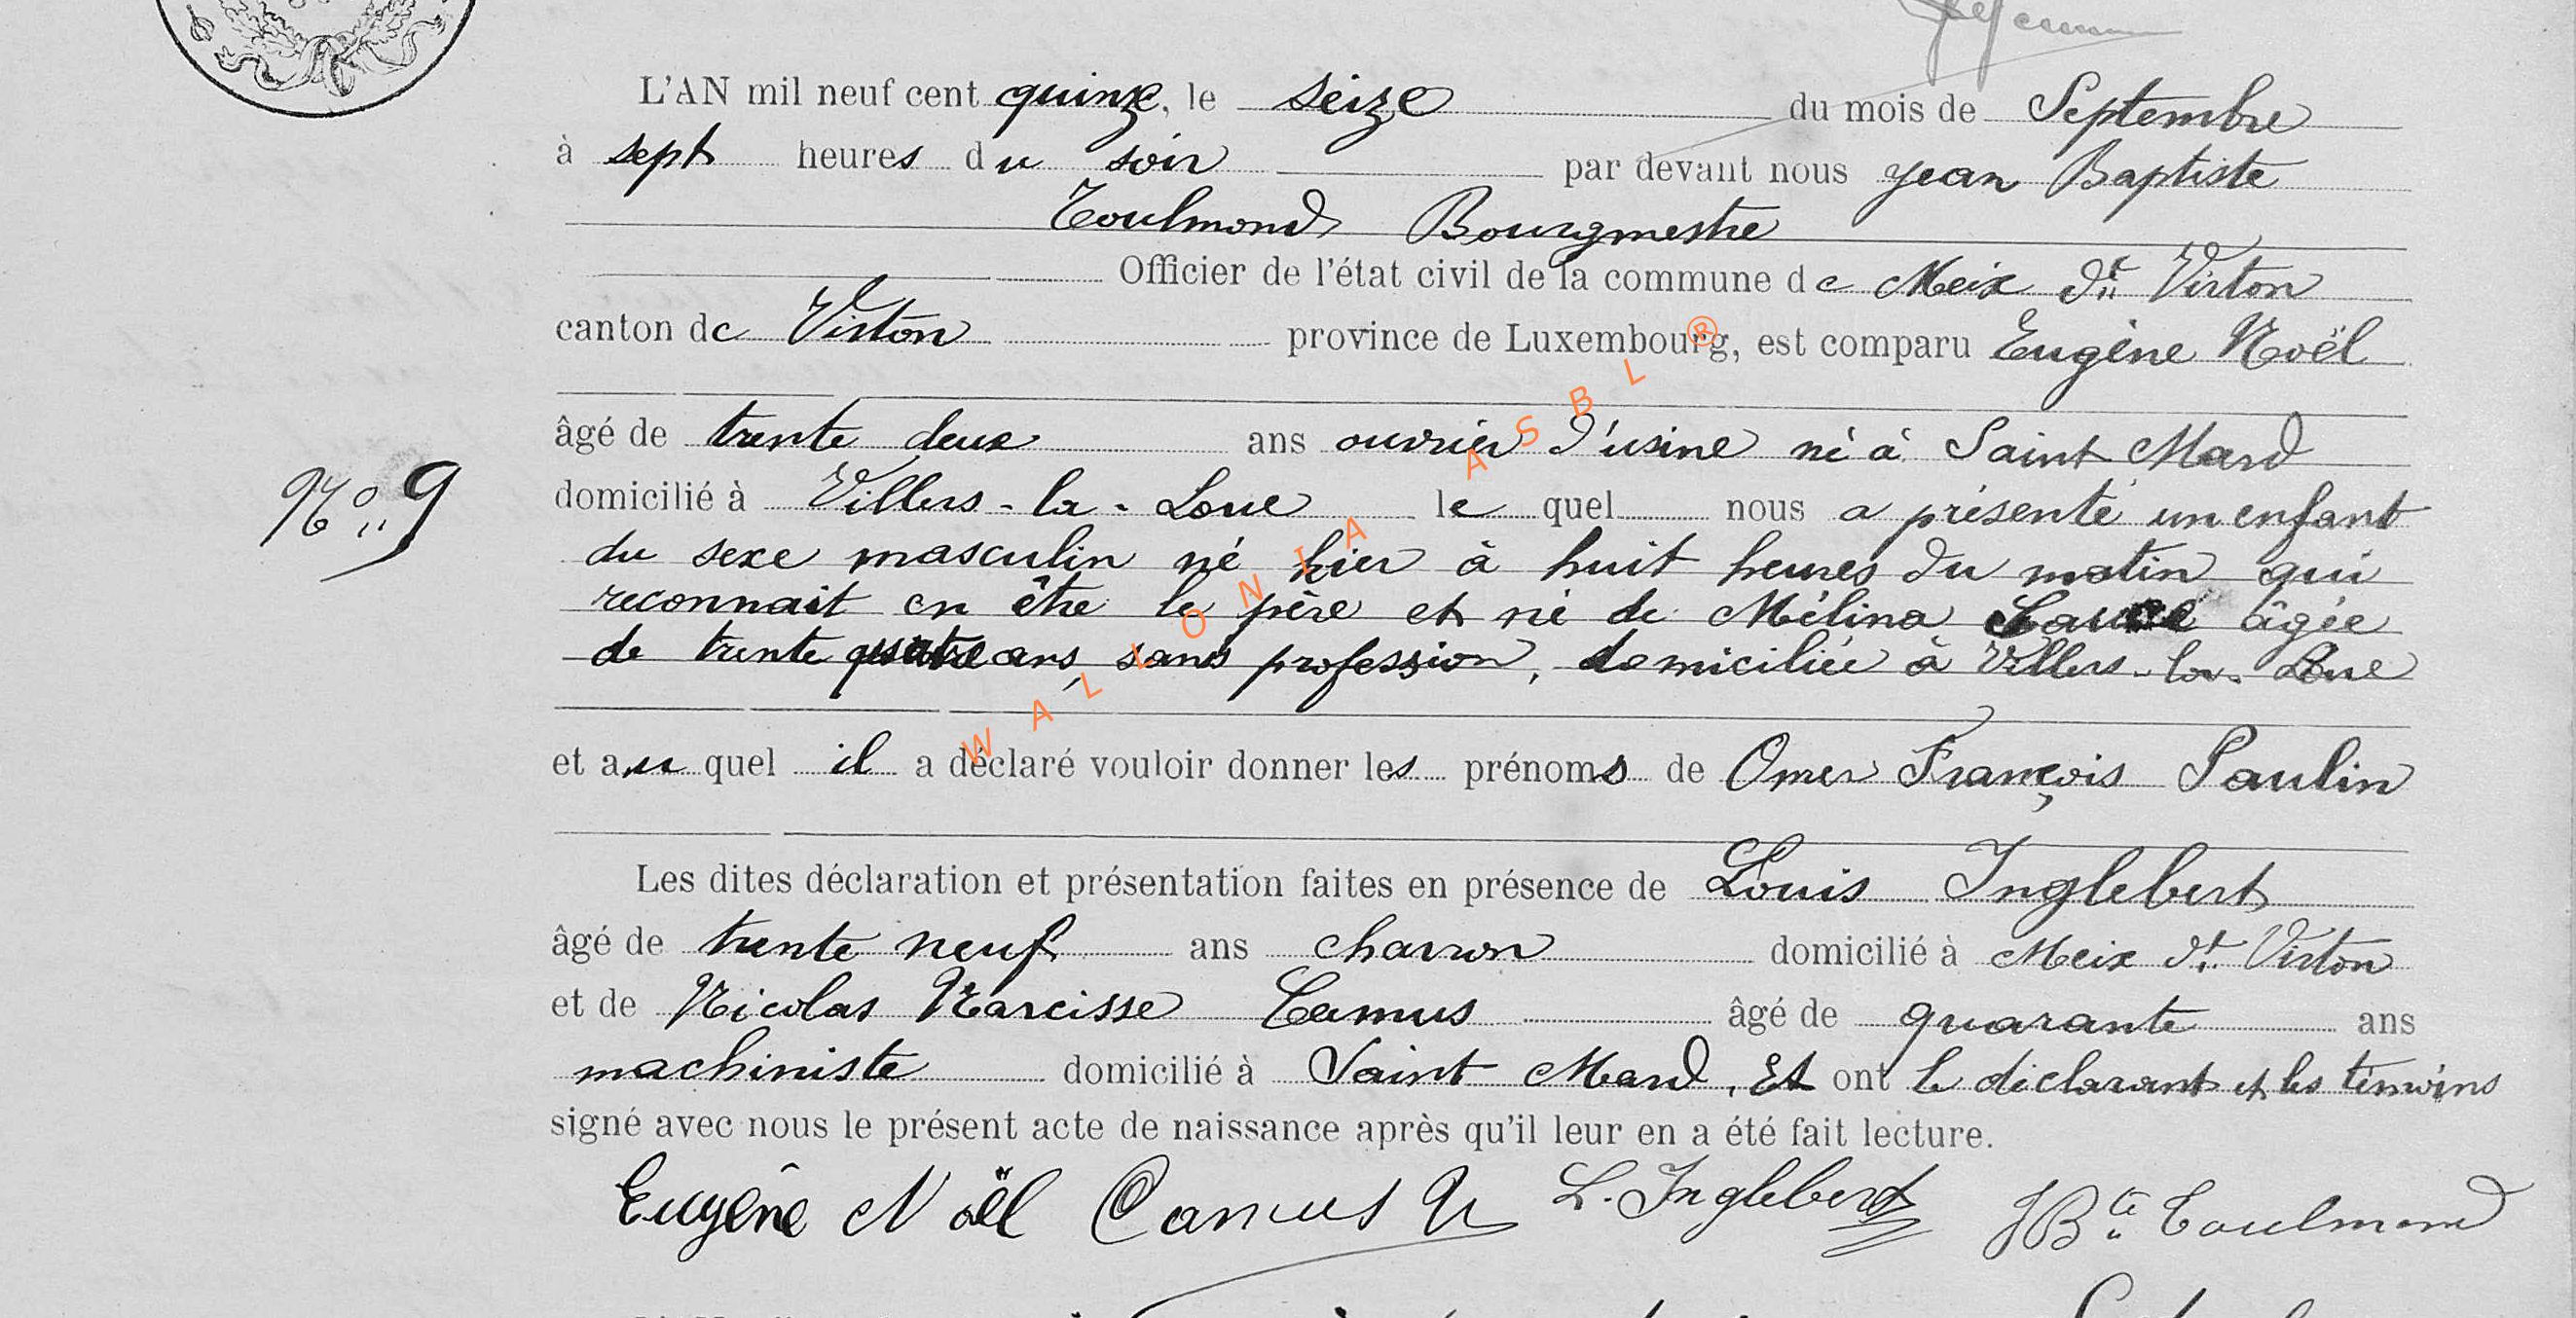 L'AN mil neuf cent quinze, le seize du mois de Septembre
à sept heures du soir par devant nous Jean Baptiste
Toulmond Bourgmestre
Officier de l'état civil de la commune de Meix dt Virton
canton de Virton province de Luxembourg, est comparu Eugène Noël
âgé de trente deux ans ouvrier d'usine né à Saint Mard
domicilié à Villers-la-Loue lequel nous a présenté un enfant
du sexe masculin né hier à huit heures du matin qui
reconnait en être le père et né de Mélina âgée
de trente quatre ans, sans profession, domiciliée à Villers-la-Loue
et auquel il a déclaré vouloir donner les prénoms de Omer François Paulin
Les dites déclaration et présentation faites en présence de Louis Inglebert
âgé de trente neuf ans charron domicilié à Meix dt Virton
et de Nicolas Narcisse Camus âgé de quarante ans
machiniste domicilié à Saint Mard, Et ont le déclarant et les témoins
signé avec nous le présent acte de naissance après qu'il leur en a été fait lecture.
No 9
Eugène Noël Camus N L. Inglebert JBte Toulmond
WALLONIA ASBL®